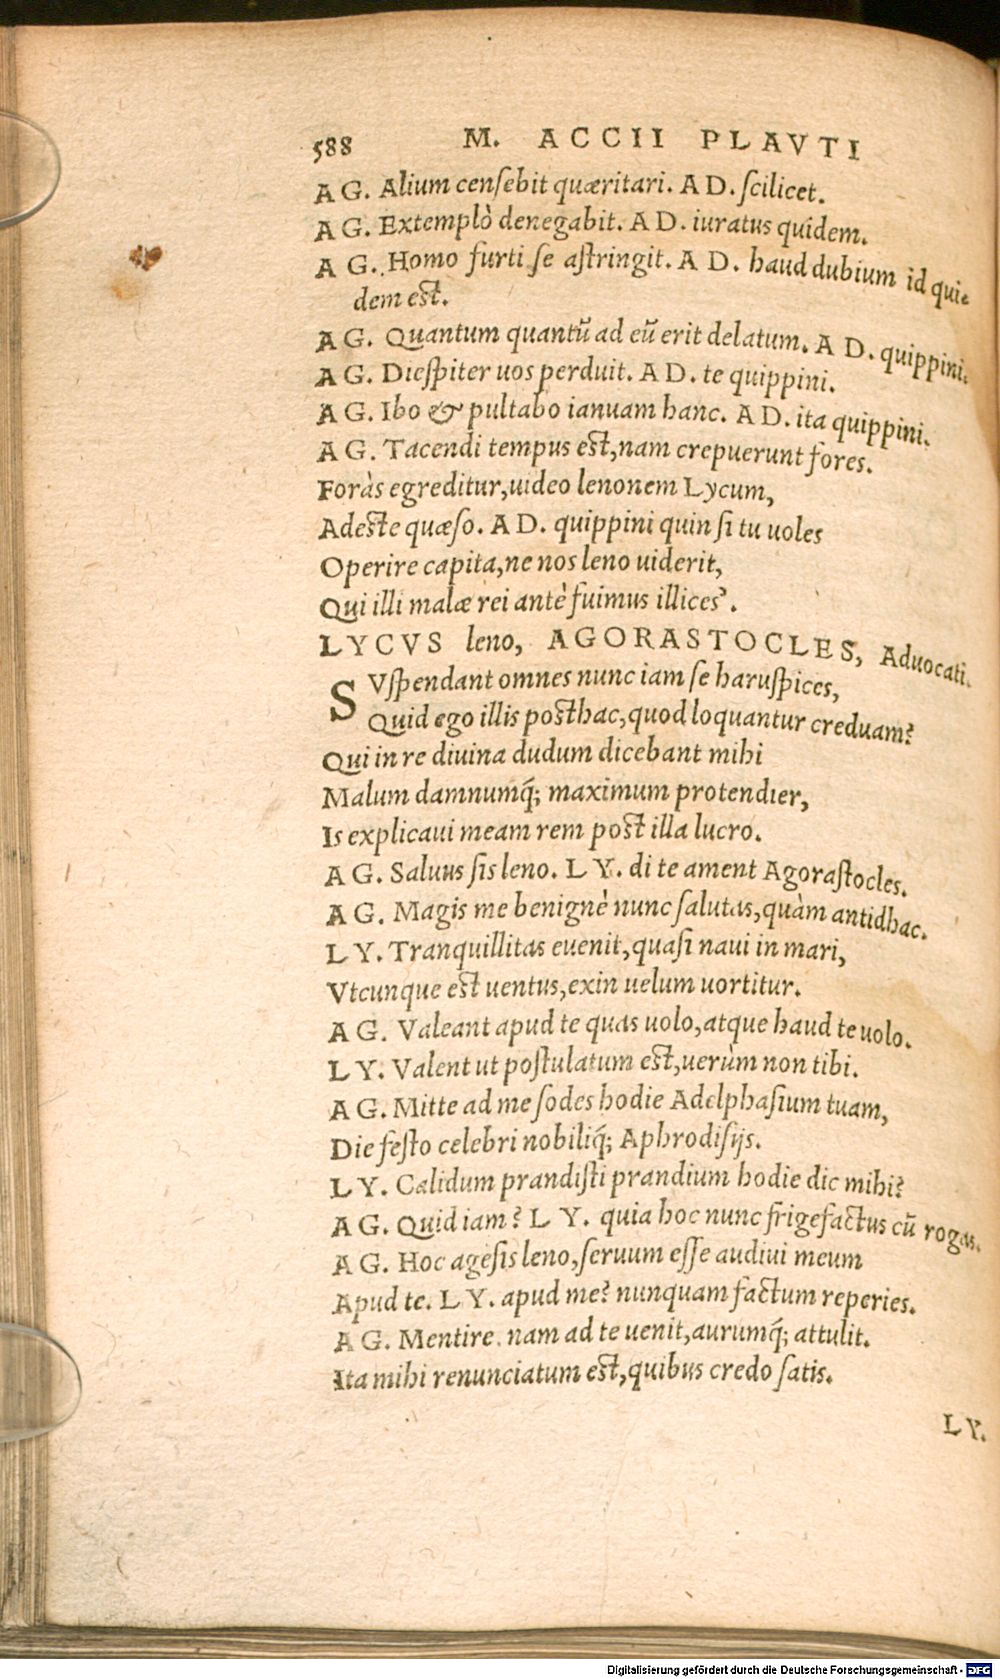 588 M. ACCII PLAVTI
AG. Alium censebit quæritari. AD. scilicet.
AG. Extemplò denegabit. AD. iuratus quidem.
AG. Homo furti se astringit. AD. haud dubium id qui-
dem est.
AG. Quantum quantũ ad eũ erit delatum. AD. quippini.
AG. Diespiter uos perduit. AD. te quippini.
AG. Ibo & pultabo ianuam hanc. AD. ita quippini.
AG. Tacendi tempus est, nam crepuerunt fores.
Foràs egreditur, uideo lenonem Lycum,
Adeste quæso. AD. quippini quin si tu uoles
Operire capita, ne nos leno uiderit,
Qui illi malæ rei antè fuimus illices?.
LYCVS leno, AGORASTOCLES, Aduocati.
SVspendant omnes nunc iam se haruspices,
Quid ego illis posthac, quod loquantur creduam?
Qui in re diuina dudum dicebant mihi
Malum damnumq́; maximum protendier,
Is explicaui meam rem post illa lucro.
AG. Saluus sis leno. LY. di te ament Agorastocles.
AG. Magis me benignè nunc salutas, quàm antidhac.
LY. Tranquillitas euenit, quasi naui in mari,
Vtcunque est uentus, exin uelum uortitur.
AG. Valeant apud te quas uolo, atque haud te uolo.
LY. Valent ut postulatum est, uerùm non tibi.
AG. Mitte ad me sodes hodie Adelphasium tuam,
Die festo celebri nobiliq́; Aphrodisijs.
LY. Calidum prandisti prandium hodie dic mihi?
AG. Quid iam? LY. quia hoc nunc frigefactus cũ rogas.
AG. Hoc agesis leno, seruum esse audiui meum
Apud te. LY. apud me? nunquam factum reperies.
AG. Mentire. nam ad te uenit, aurumq́; attulit.
Ita mihi renunciatum est, quibus credo satis.
LY.
Digitalisierung gefördert durch die Deutsche Forschungsgemeinschaft - DFG